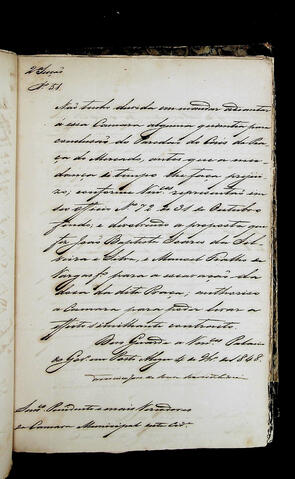 2ª Secção
Nº 51.
Não tenho duvida em mandar adiantar
á essa Camara alguma quantia para
conclusão do Paredão do Caes da Pra-
ça do Mercado, antes que a mu-
dança de tempo lhe faça prejui-
zo, conforme V.ces representão em
seu officio Nº 72 de 31 de Outubro
findo; e devolvendo a proposta que
fez João Baptista Soares da Sil-
veira e Souza, e Manoel
Vargas para a escavação da
dóca da dita Praça, authoriso
a Camara para poder levar a
effeito similhante contracto.
Deos Guarde a V.ces Palacio
do Gov.º em Porto Alegre 4 de 9br.º de 1848.
Snr.es Presidente e mais Vereadores
da Camara Municipal desta Cid.e